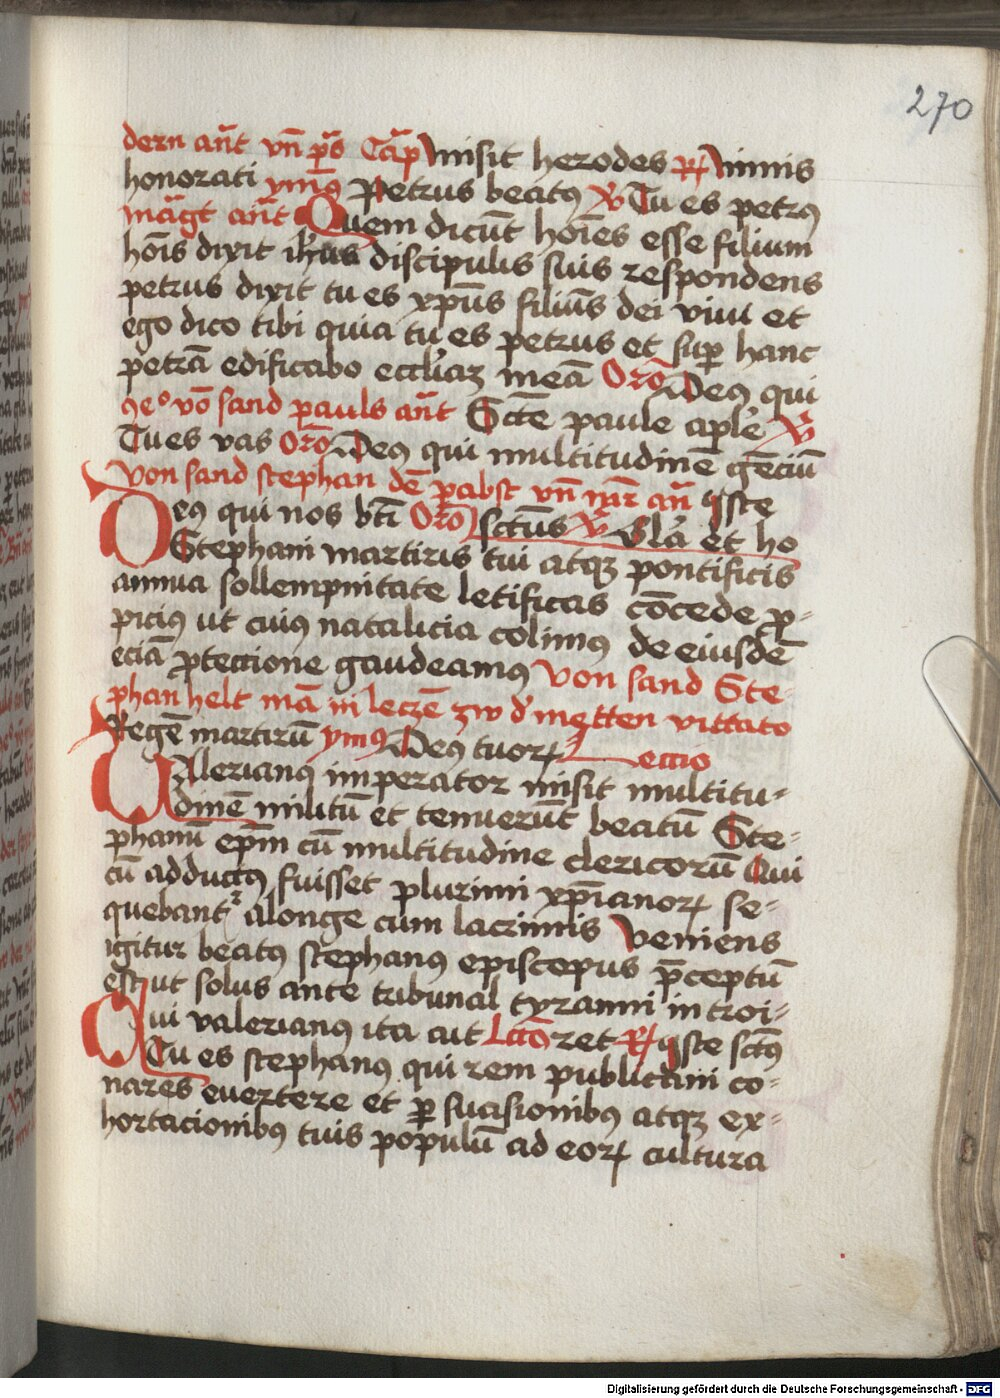 270
dern an̄t vn̄ p̄s Cap̄ misit herodes ℟ Nimis
honorati ymꝰ Petrus beatꝰ ℣ Tu es petrꝰ
mag̅t an̄t Quem dicūt hōi̅es esse filium
hōi̅s dixit ih̅us discipulis suis respondens
petrus dixit tu es xp̅us filius dei vivi et
ego dico tibi quia tu es petrus et sup̱ hanc
petrā edificabo eccl̅iaꝫ meā Or̅o Deꝰ qui
vō sand pauls an̄t Sc̅te paule ap̅le ℣
Tu es vas Or̅o Deꝰ qui multitudinē gēciū
von sand stephan dē pabst vn̄ mr̅ an̄ iste
Deꝰ qui nos bt̅i Or̅o sc̅tus ℣ Gl̅a et ho
Stephani martiris tui atqꝫ pontificis
annua sollempnitate letificas cōcede ꝓ-
piciꝰ ut cuiꝰ natalicia colimꝰ de eiusdē
eciā ꝓtectione gaudeamꝰ von sand Ste-
phan helt mā iii leczē zw d̓ metten vittato
Regē martirū ymꝰ Deꝰ tuoꝝ Leccio
Valerianꝰ imperator misit multitu-
dinē militū et tenuerūt beatū Ste-
phanū ep̅m cū multitudine clericorū Qui
cū adductꝰ fuisset plurimi xp̅ianoꝝ se-
quebant᷑ alonge cum lacrimis Veniens
igitur beatꝰ stephanꝰ episcopus p̅ceptū
est ut solus ante tribunal tyranni introi-
Qui valerianꝰ ita ait Lc̅o ret ℟ iste sc̅tꝰ
Tu es stephanꝰ qui rem publicam co-
nares evertere et ꝑ suasionibꝰ atqꝫ ex-
hortacionibꝰ tuis populū ad eoꝝ cultura
Digitalisierung gefördert durch die Deutsche Forschungsgemeinschaft - DFG